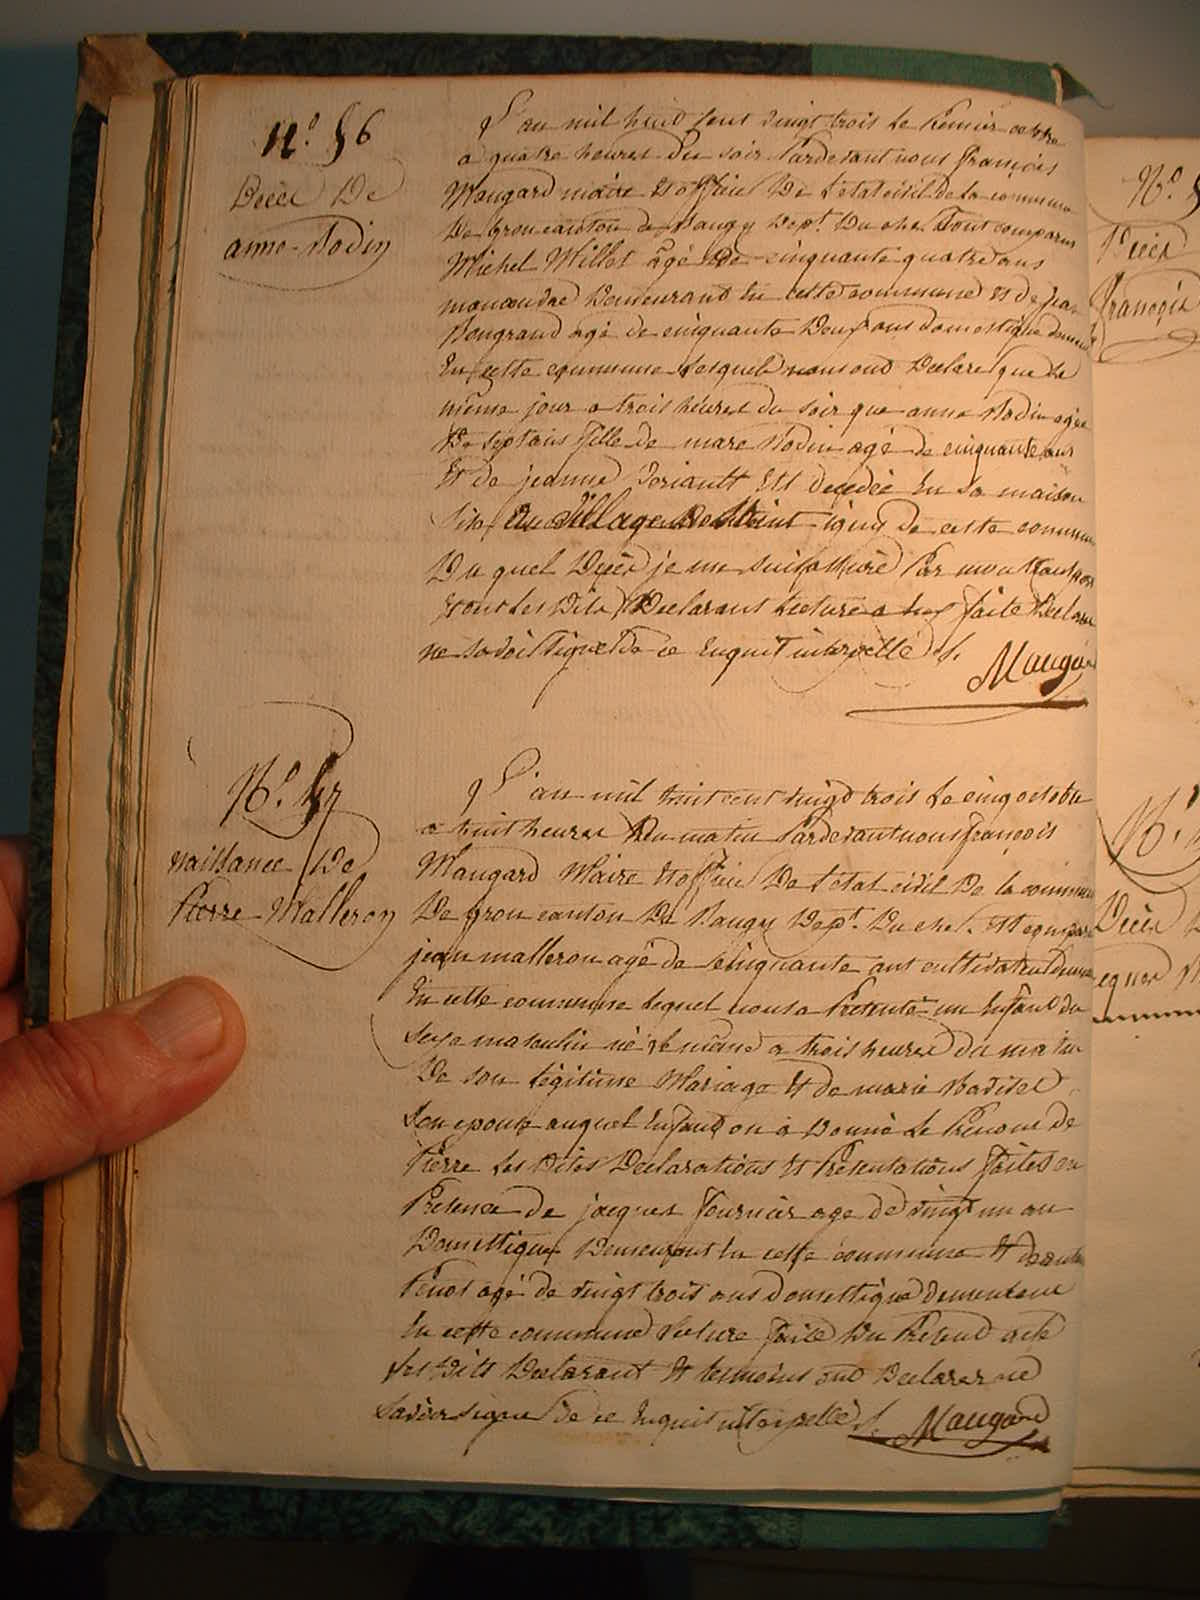 N.º 56
Décès De
anne Nodin
L'an mil huit cent vingt trois Le Premier octobre
a quatre heures Du soir Pardevant nous François
Maugard maire Et officier De L'etat civil de la commune
De Gron canton de Baugy Dept. Du cher Sont comparus
Michel Millet agé De cinquante quatre ans
manoeuvre Demeurant En cette commune Et de Jean
agé de cinquante Deux ans domestique demeurant
En cette commune Lesquels nous ont Declaré que Le
même jour a trois heures du soir que anne Nodin agée
De sept ans fille de marc Nodin agé de cinquante ans
Et de jeanne Est decedée En sa maison
sise Au village De Saint igny de cette commune
Du quel Décès je me suis assuré Par mon transport
Et ont Les Dits Declarants Lecture a eux faite Declaré
ne savoir signer De ce Enquis interpellé S.
Maugard
N.º 57
naissance De
Pierre Malleron
L'an mil huit cent vingt trois Le cinq octobre
a huit heures Du matin Pardevant nous François
Maugard Maire Et officier De L'état civil De la commune
De Gron canton De Baugy Dept. Du cher. Est comparu
jean malleron agé de cinquante ans cultivateur demeurant
En cette commune Lequel nous a Presenté un Enfant du
sexe masculin né le même a trois heures du matin
De son légitime Mariage Et de marie
son epouse auquel Enfant on a Donné Le Prenom de
Pierre Les Dites Declarations Et Présentations faites en
Présence de jacques Fournier age de vingt un an
Domestique Demeurant En cette commune Et
Pinot agé de vingt trois ans domestique demeurant
En cette commune Lecture faite Du Présent acte
Les Dits Declarant Et temoins ont Declarer ne
Savoir signer De ce Enquis interpellé S. Maugard
N.º
Décès
François
N.º
Décès